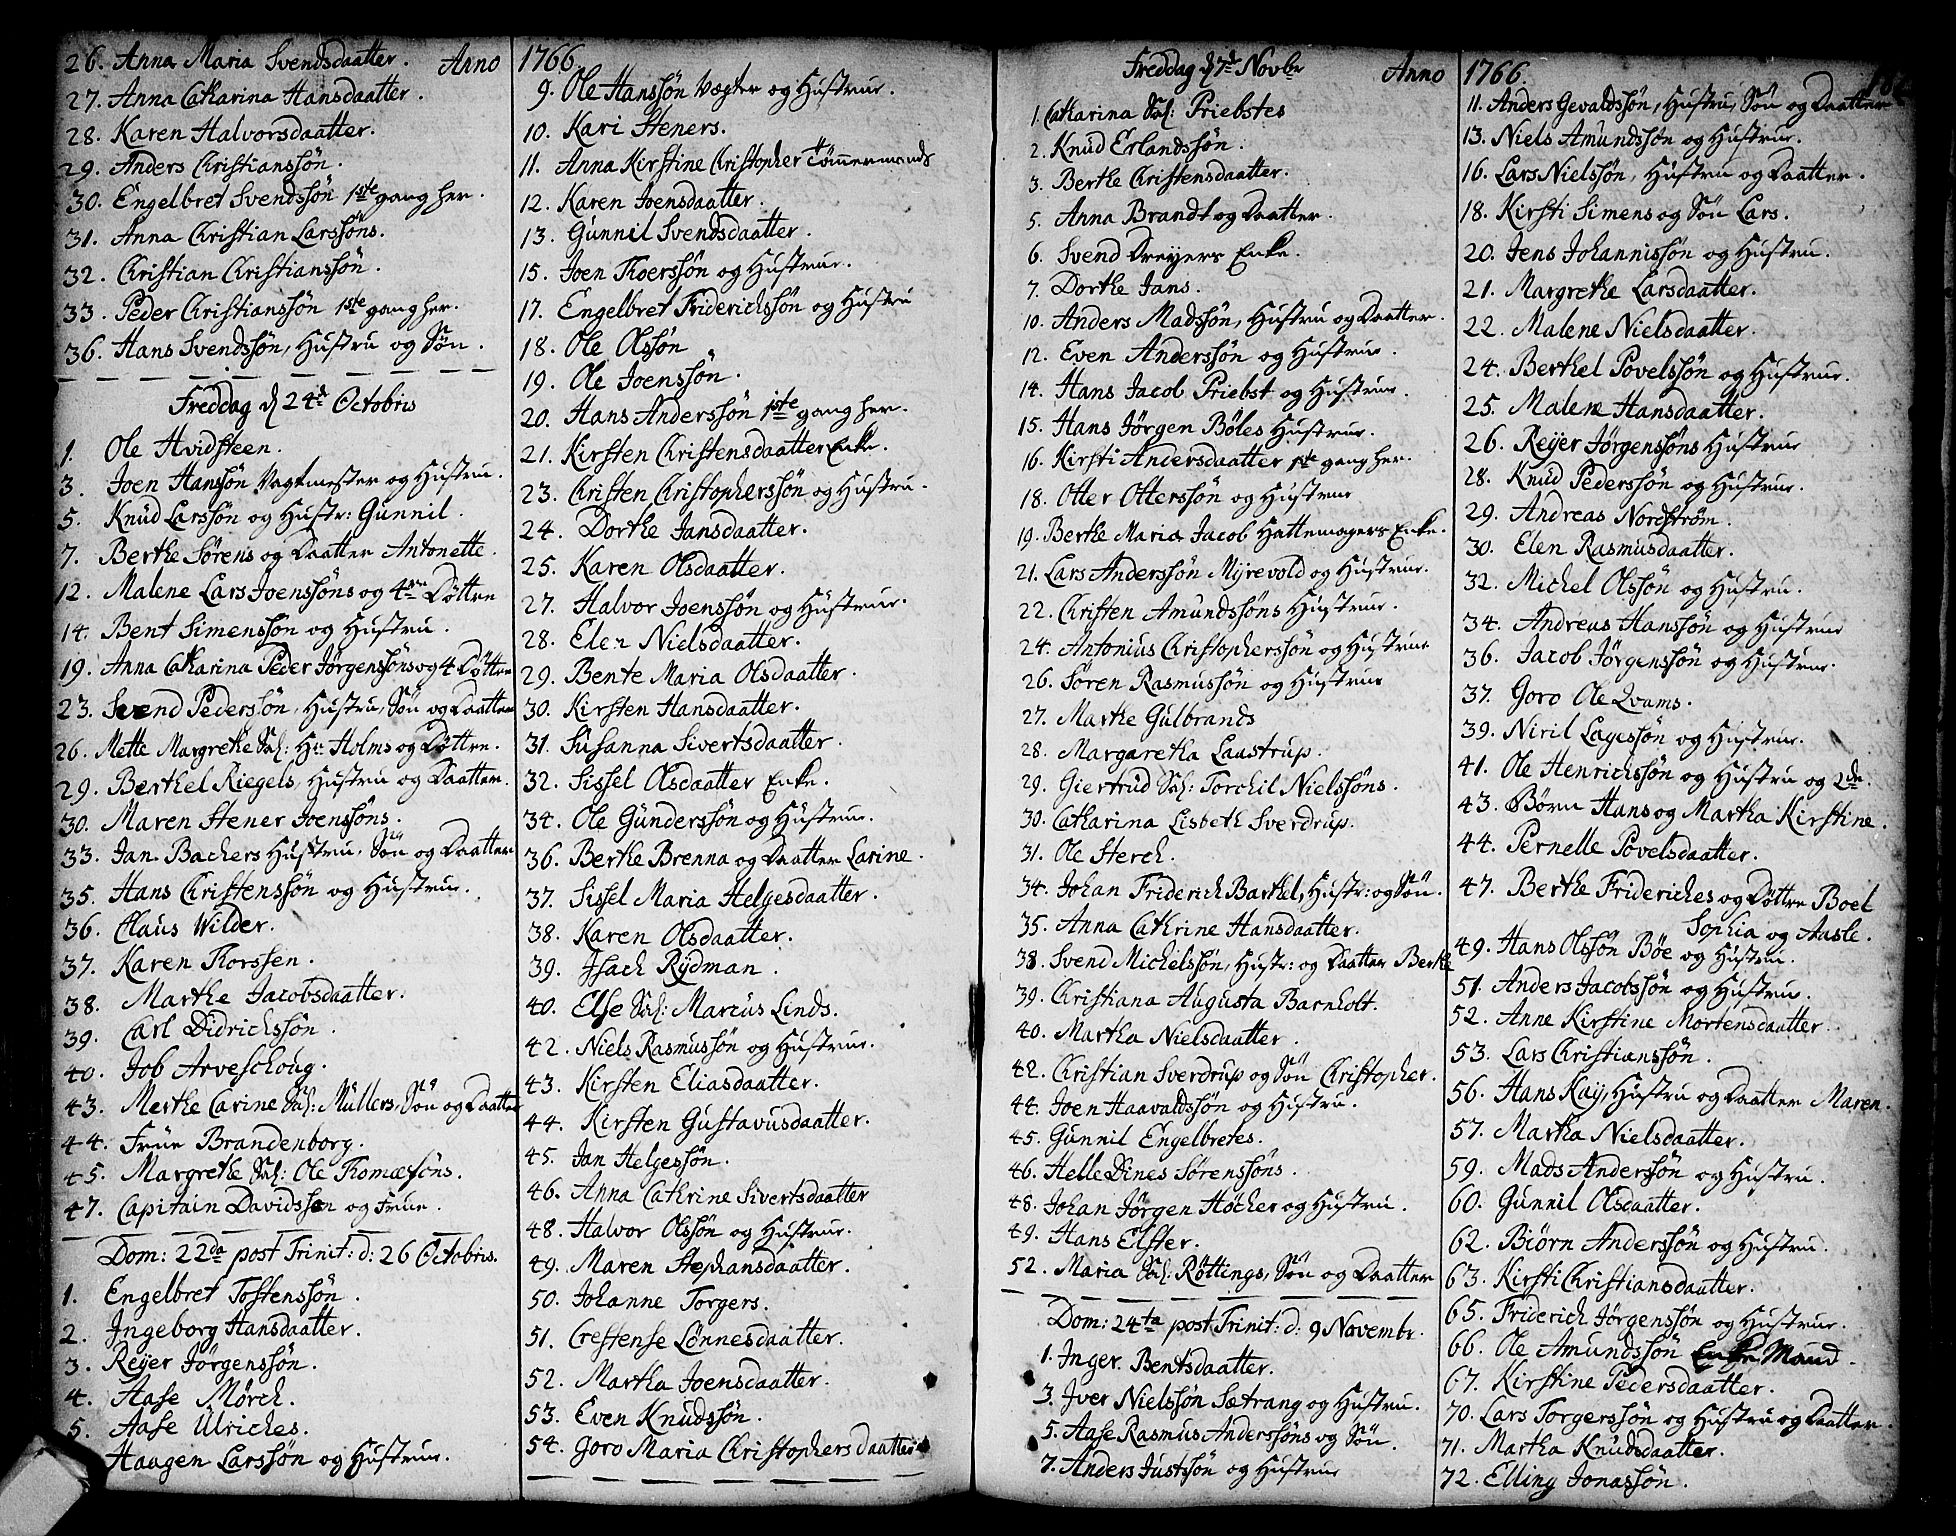 26. Anna Maria Svendsdaatter. Anno
27. Anna Catharina Hansdaatter.
28. Karen Halvorsdaatter.
29. Anders Christianssön.
30. Engelbret Svendssön 1ste gang her.
31. Anna Christian Larssöns.
32. Christian Christianssön.
33. Peder Christianssön 1ste gang her.
36. Hans Svendssön, Hustru og Sön.
Freddag d 24de Octobris
1. Ole Hvidsteen.
3. Joen Hanssön Vagtmester og Hustru.
5. Knud Larssön og Hustr: Gunnil.
7. Berthe Sörens og Daatter Antonette.
12. Malene Lars Joenssöns og 4re Döttre
14. Bent Simenssön og Hustru.
19. Anna Catharina Peder Jörgenssöns og 4 Döttre
23. Svend Pederssön, Hustru, Sön og Daatter
26. Mette Margrethe Sal: Hr Holms og Döttre.
29. Berthel Riegels, Hustru og Daatter.
30. Maren Stener Joenssöns.
33. Jan Bachers Hustru, Sön og Daatter
35. Hans Christenssön og Hustrue.
36. Claus Wilder.
37. Karen Thorssen.
38. Marthe Jacobsdaatter.
39. Carl Didrichssön.
40. Job Arveschoug.
43. Merthe Carine Sal: Müllers, Sön og Daatter
44. Frue Brandenborg.
45. Margrethe Sal: Ole Thomæsöns.
47. Capitain Davidssen og Frue.
Dom: 22da post Trinit: d: 26 Octobris.
1. Engelbret Tostenssön.
2. Ingeborg Hansdaatter.
3. Reyer Jörgenssön.
4. Aase Mörch.
5. Aase Ulriches.
Haagen Larssön og Hustrue.
1766.
9. Ole Hanssön Vægter og Hustrue.
10. Kari Steners.
11. Anna Kirstine Christopher Tömmermands
12. Karen Joensdaatter.
13. Gunnil Svendsdaatter.
15. Joen Thoerssön og Hustrue.
17. Engelbret Friderichssön og Hustru
18. Ole Olssön
19. Ole Joenssön.
20. Hans Anderssön 1ste gang her.
21. Kirsten Christensdaatter Enke.
23. Christen Christopherssön og Hustru.
24. Dorthe Jansdaatter.
25. Karen Olsdaatter.
27. Halvor Joenssön og Hustrue.
28. Elen Nielsdaatter.
29. Bente Maria Olsdaatter.
30. Kirsten Hansdaatter.
31. Susanna Sivertsdaatter.
32. Sissel Olsdaatter Enke.
34. Ole Gunderssön og Hustrue.
36. Berthe Brenna og Daatter Larine.
37. Sissel Maria Helgesdaatter.
38. Karen Olsdaatter.
39. Isach Rydman.
40. Else Sal: Marcus Linds.
42. Niels Rasmussön og Hustrue.
43. Kirsten Eliasdaatter.
44. Kirsten Gustavusdaatter.
45. Jan Helgessön.
46. Anna Cathrine Sivertsdaatter
48. Halvor Olssön og Hustrue.
49. Maren Stephansdaatter.
50. Johanne Torgers.
51. Crestense Lönnesdaatter.
52. Martha Joensdaatter.
53. Even Knudssön.
54. Goro Maria Christophersdaatter
Freddag d 7de Novbr Anno
1. Catharina Sal: Priebstes
2. Knud Erlandssön.
3. Berthe Christensdaatter.
5. Anna Brandt og Daatter.
6. Svend Dreyers Enke.
7. Dorthe Jans.
10. Anders Madssön, Hustru og Daatter.
12. Even Anderssön og Hustrue.
14. Hans Jacob Priebst og Hustrue.
15. Hans Jörgen Böles Hustrue.
16. Kirsti Andersdaatter 1ste gang her.
18. Otter Otterssön og Hustrue
19. Berthe Maria Jacob Hattemagers Enke.
21. Lars Anderssön Myrevold og Hustrue.
22. Christen Amundssöns Hustrue.
24. Antonius Christopherssön og Hustrue
26. Sören Rasmussön og Hustrue
27. Marthe Gulbrands
28. Margaretha Laustrup.
29. Giertrud Sal: Torchil Nielssöns.
30. Catharina Lisbeth Sverdrup.
31. Ole Sterch.
34. Johan Friderich Barthel, Hustr: og Sön.
35. Anna Cathrine Hansdaatter.
38. Svend Michelssön, Hustr: og Daatter Berthe
39. Christiana Augusta Barnholt.
40. Martha Nielsdaatter.
42. Christian Sverdrup og Sön Christopher.
44. Joen Haavaldssön og Hustru.
45. Gunnil Engelbretes.
46. Helle Dines Sörenssöns.
48. Johan Jörgen Höcher og Hustru.
49. Hans Elster.
52. Maria Sal: Röttings, Sön og Daatter
Dom: 24ta post Trinit: d: 9 Novembr.
1. Inger Bentsdaatter.
3. Iver Nielssön Sætrang og Hustru.
5. Aase Rasmus Anderssöns og Sön.
7. Anders Justssön og Hustrue
1766.
11. Anders Gevaldssön, Hustru, Sön og Daatter
13. Niels Amundssön og Hustrue.
16. Lars Nielssön, Hustru og Daatter.
18. Kirsti Simens og Sön Lars.
20. Jens Johannissön og Hustru.
21. Margrethe Larsdaatter.
22. Malene Nielsdaatter.
24. Berthel Povelssön og Hustrue.
25. Malene Hansdaatter.
26. Reyer Jörgenssöns Hustrue
28. Knud Pederssön og Hustrue.
29. Andreas Nordström.
30. Elen Rasmusdaatter.
32. Michel Olssön og Hustru.
34. Andreas Hanssön og Hustrue
36. Jacob Jörgenssön og Hustrue.
37. Goro Ole Qvams.
39. Niril Lagessön og Hustrue.
41. Ole Henrichssön og Hustru og 2de.
43. Börn Hans og Martha Kirstine.
44. Pernelle Povelsdaatter.
47. Berthe Friderichs og Döttre Boel
Sophia og Aasle.
49. Hans Olssön Böe og Hustru.
51. Anders Jacobssön og Hustrue.
52. Anne Kirstine Mortensdaatter.
53. Lars Christianssön.
56. Hans Kay, Hustru og Daatter Maren.
57. Martha Nielsdaatter.
59. Mads Anderssön og Hustru.
60. Gunnil Olsdaatter.
62. Biörn Anderssön og Hustru.
63. Kirsti Christiansdaatter.
65. Friderich Jörgenssön og Hustrue.
66. Ole Amundssön Enke Mand.
67. Kirstine Pedersdaatter.
70. Lars Torgerssön og Hustru og Daatter.
71. Martha Knudsdaatter.
72. Elling Jonassön.